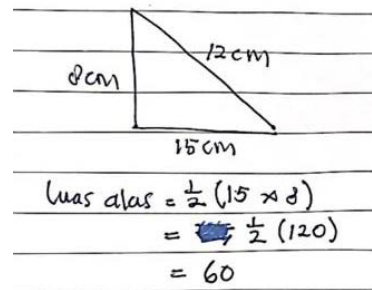 12cm
8cm
15cm
Luas alas = 1/2 (15 x 8)
= 1/2 (120)
= 60